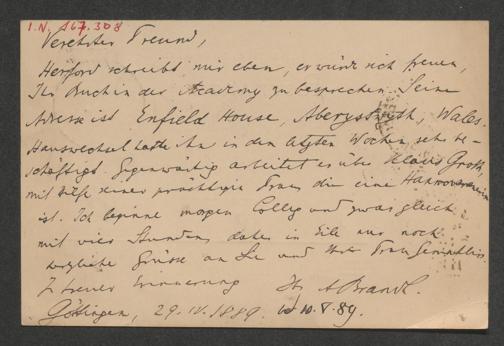 I.N. 167.308
Verehrter Freund,
Herford schreibt mir eben, er würde sich freuen,
Ihr Buch in der Academy zu besprechen. Seine
Adresse ist Enfield House, Aberystwith, Wales.
Hauswechsel hatte ihn in den letzten Wochen sehr be-
schäftigt. Gegenwärtig arbeitet er über Klaus Groth,
mit Hilfe seiner prächtigen Frau, die eine Hannoveranerin
ist. Ich beginne morgen Colleg und zwar gleich
mit vier Stunden, daher in Eile nur noch
herzliche Grüsse an Sie und Ihre Frau Gemahlin.
In treuer Erinnerung Ihr A Brandl.
Göttingen, 29.IV.1889. 10.V.89.